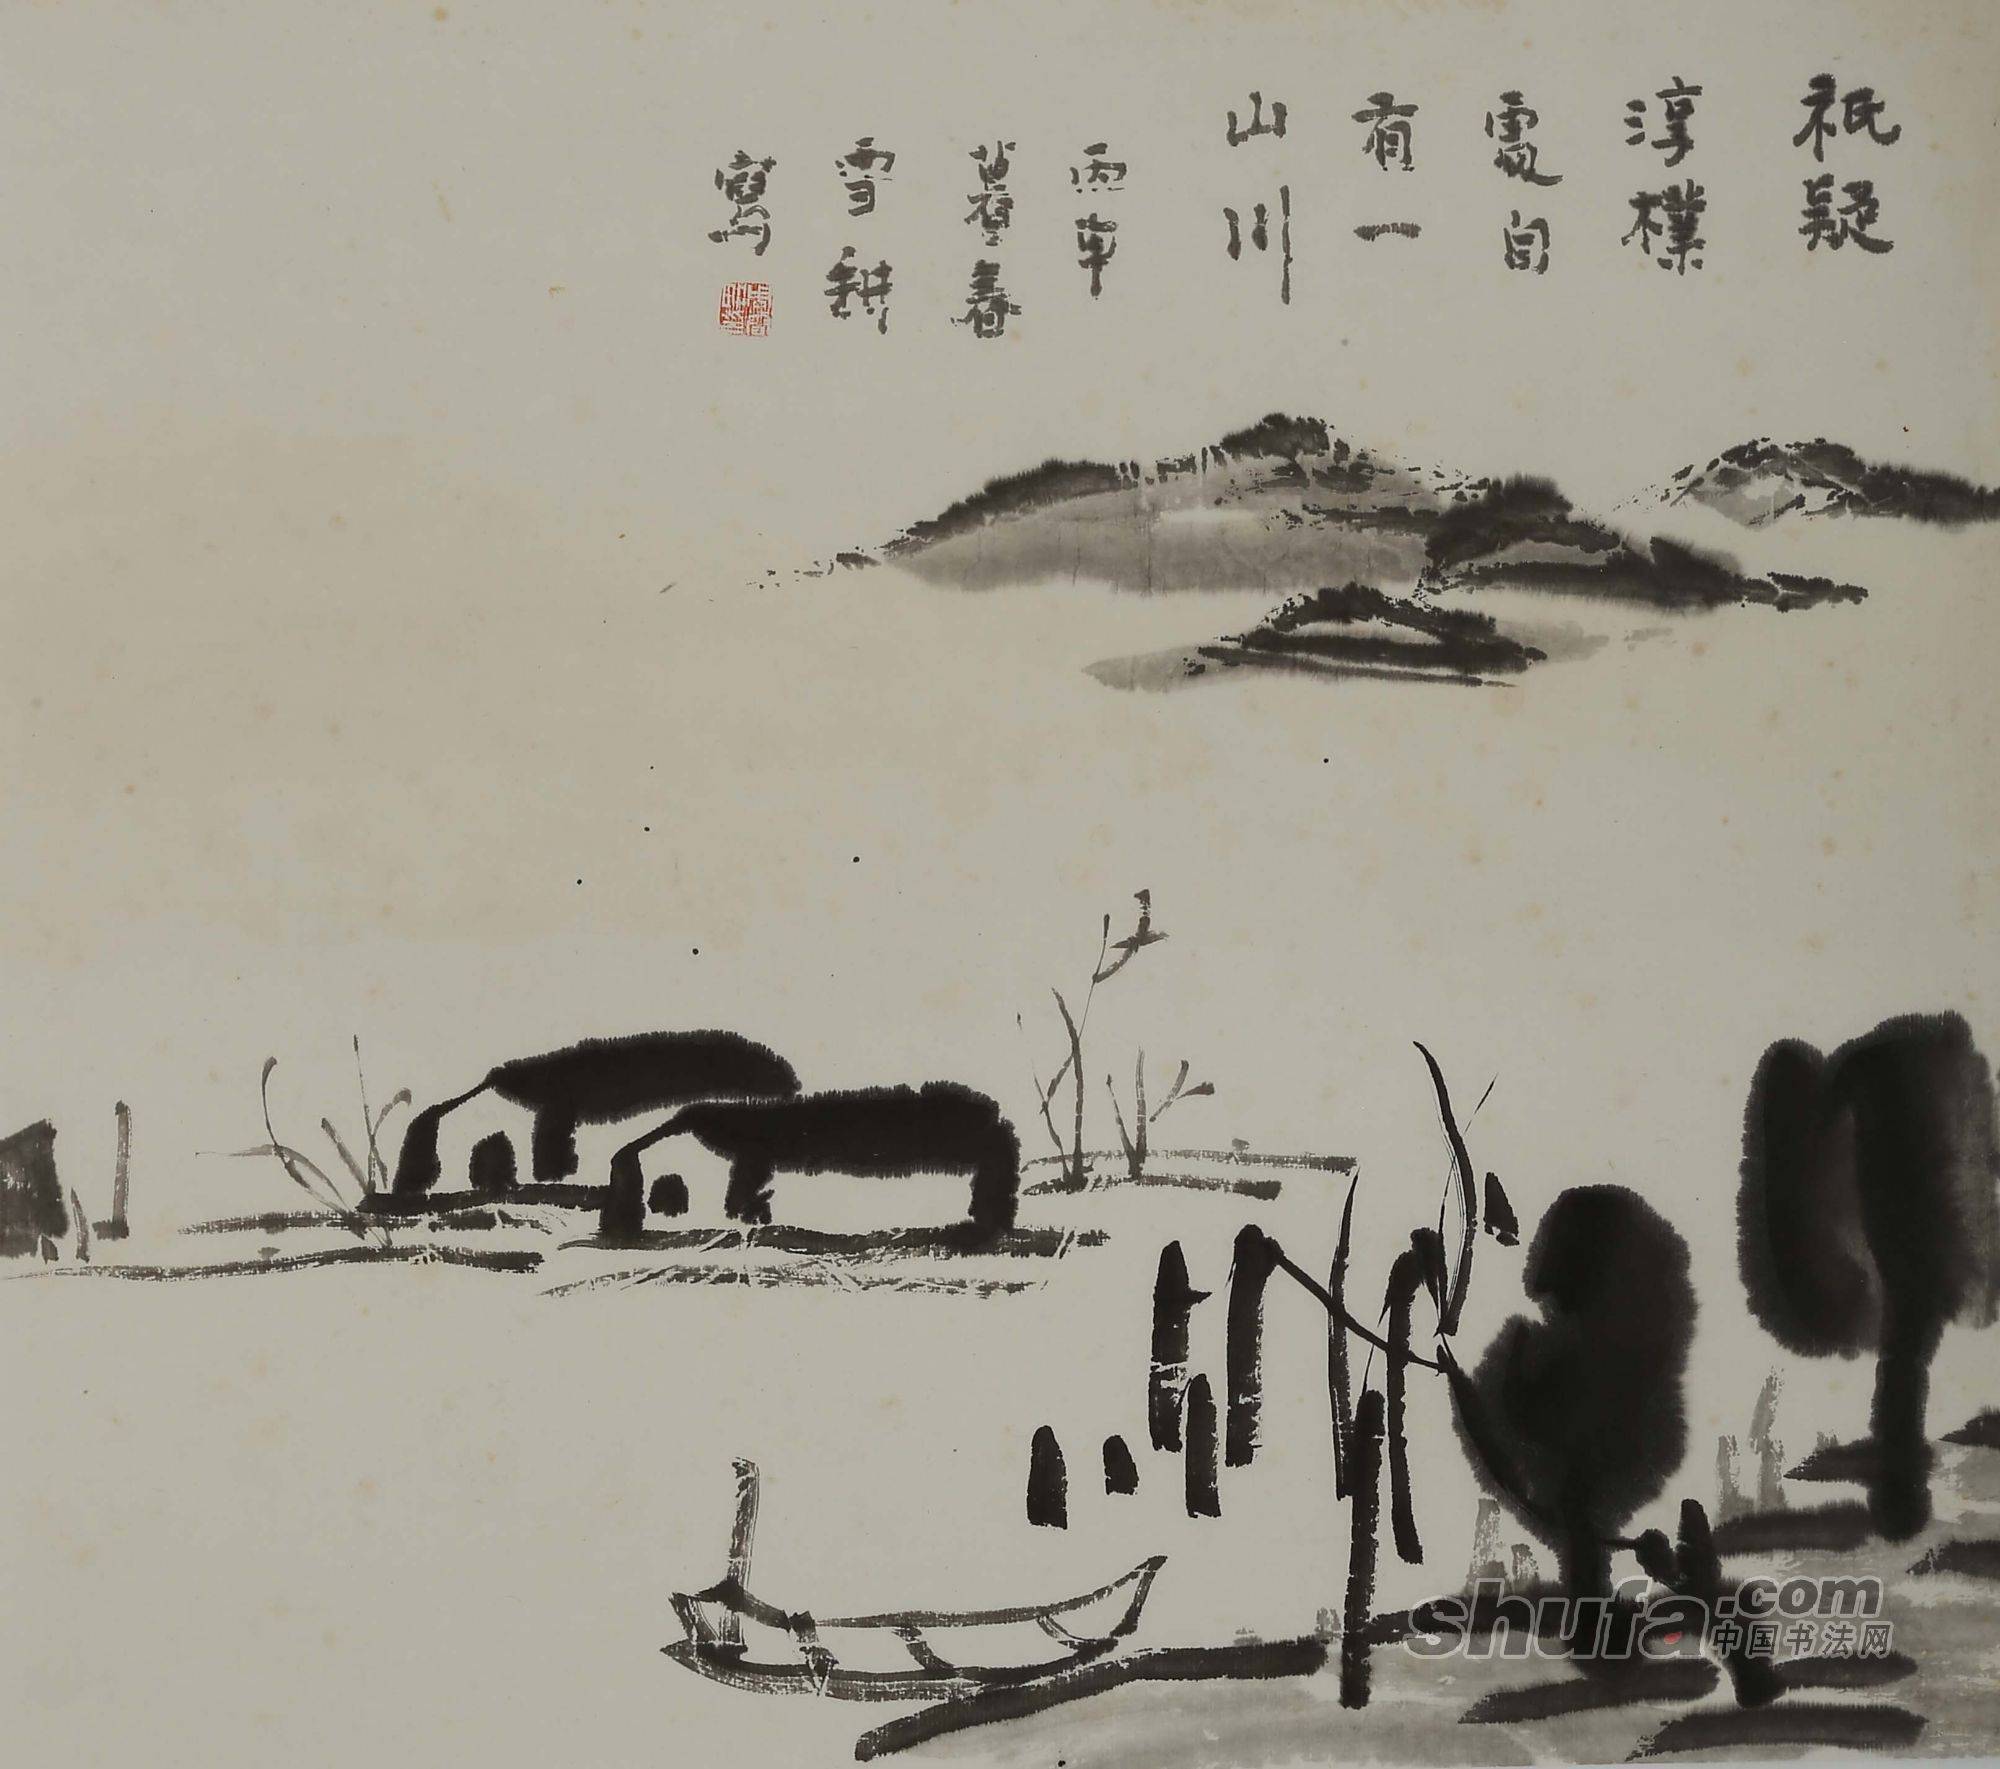 祇疑
淳樸
處自
有一
山川
丙申
暮春
雪耕
寫
shufa.com
中国书法网